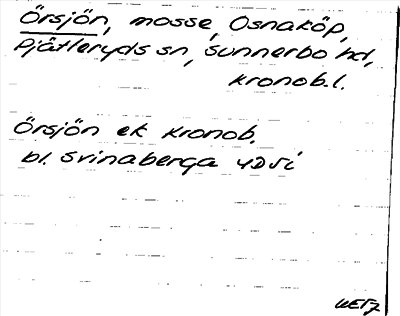 Örsjön, mosse, Osnaköp,
Pjätteryds sn, Sunnerbo hd,
Kronob.l.
Örsjön ek Kronob.
bl. Svinaberga 4D5i